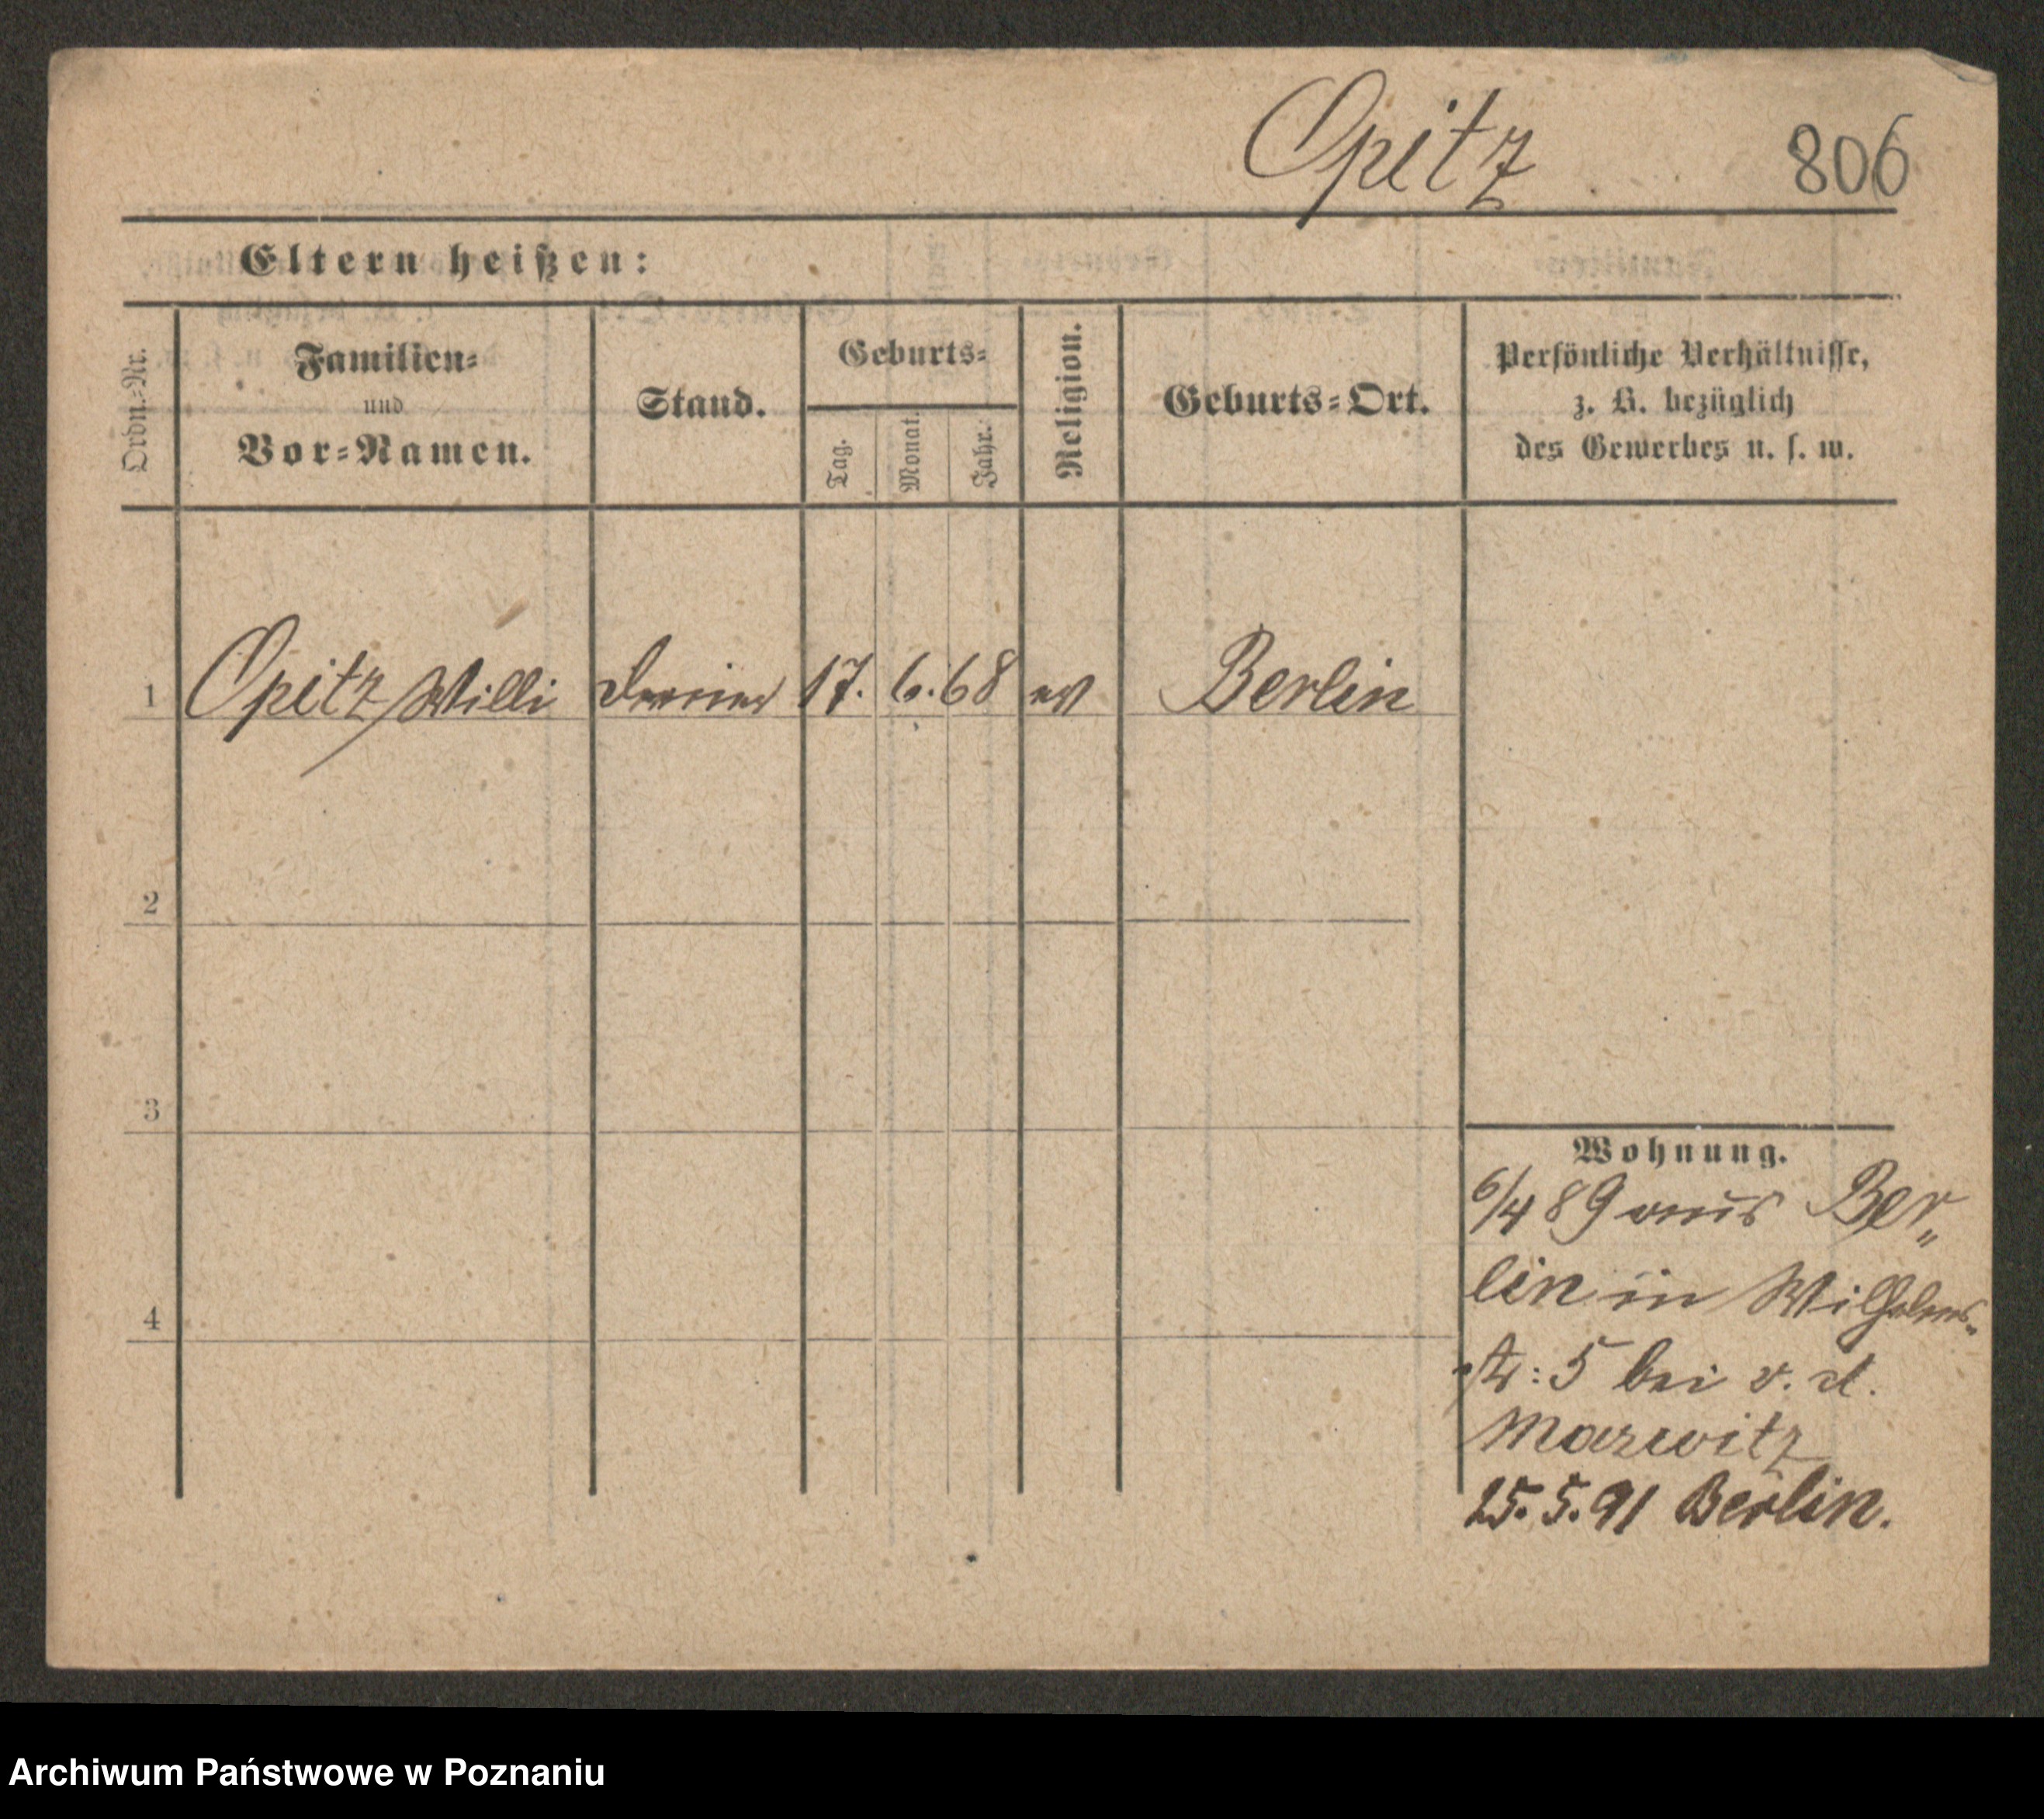 Opitz 806
Eltern heißen:
Ordn.-Nr.
Familien-
und
Vor-Namen.
Stand.
Geburts-
Tag.
Monat.
Jahr.
Religion.
Geburts-Ort.
Persönliche Verhältnisse,
z. B. bezüglich
des Gewerbes u. s. w.
1 Opitz, Willi Diener 17. 6. 68 ev Berlin
2
3
4
Wohnung.
6/4 89 aus Ber„
lin in Wilhelms-
str: 5 bei v. d.
Marwitz
25. 5. 91 Berlin.
Archiwum Państwowe w Poznaniu